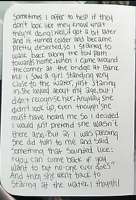 Sometimes I offer to help if they
don't look like they know what
they're doing. Well, I got a bit later
and it turned colder and became
pretty deserted, so I started to
walk back taking the bay path
towards home. When I came around
the corner at the bridge at Dame
Mt. I saw a girl standing very
close to the water, just staring
in. She looked about my age, but I
didn't recognize her. Anyway she
didn't look up, even though she
must have heard me. So I decided
I would just pretend she wasn't
there. And, but as I was passing
she did turn to me and said
something that sounded like:
"You can come back if you
want to but no-one ever does"
And then she went back to
staring at the water. I thought